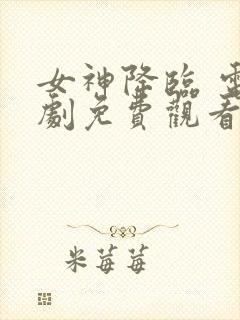 女神降臨
劇免費觀看
米莓莓